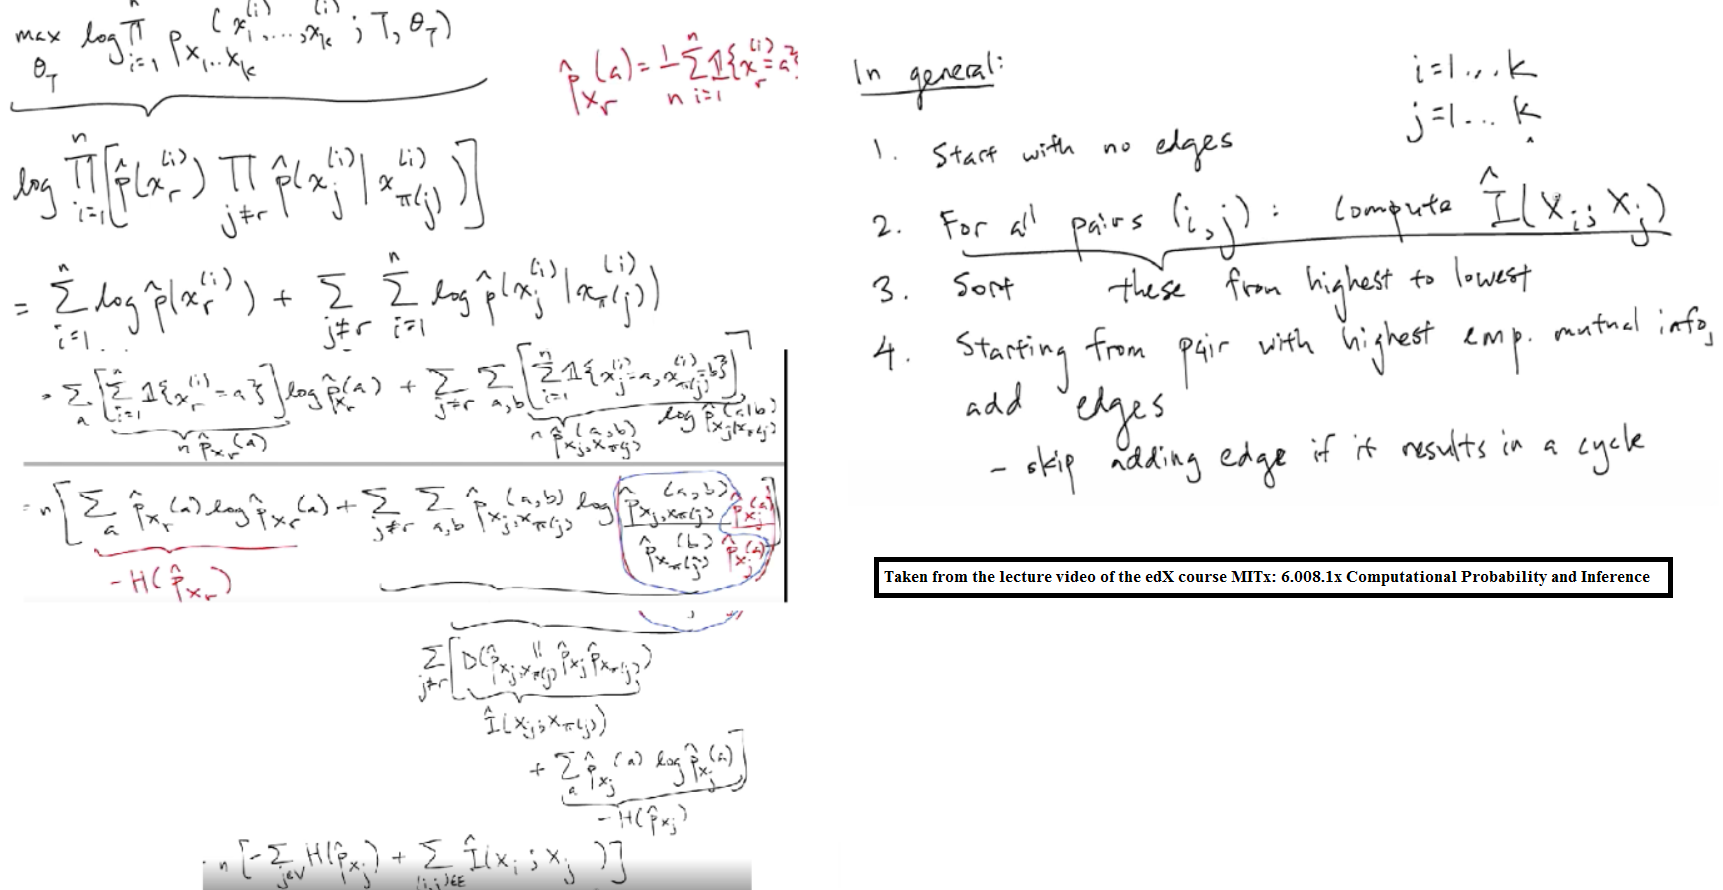 max log ∏ p (x₁^(i), ..., x_k^(i); T, θ_T)
θ_T i=1 X₁..X_k
n
log ∏ [p̂(x_r^(i)) ∏ p̂(x_j^(i) | x_π(j)^(i))]
i=1 j≠r
= Σ_{i=1}^n log p̂(x_r^(i)) + Σ_{j≠r} Σ_{i=1}^n log p̂(x_j^(i) | x_π(j)^(i))
= Σ_a [Σ_{i=1}^n 𝟙{x_r^(i) = a}] log p̂_{X_r}(a) + Σ_{j≠r} Σ_{a,b} [Σ_{i=1}^n 𝟙{x_j^(i) = a, x_π(j)^(i) = b}]
log p̂_{X_j|X_π(j)}(a|b)
n p̂_{X_r}(a) n p̂_{X_j,X_π(j)}(a,b)
= n [Σ_a p̂_{X_r}(a) log p̂_{X_r}(a) + Σ_{j≠r} Σ_{a,b} p̂_{X_j,X_π(j)}(a,b) log p̂_{X_j,X_π(j)}(a,b) p̂_{X_j}(a)
p̂_{X_π(j)}(b) p̂_{X_j}(a)]
- H(p̂_{X_r})
Σ_{j≠r} [D(p̂_{X_j,X_π(j)} || p̂_{X_j} p̂_{X_π(j)})
Î(X_j; X_π(j))
+ Σ_a p̂_{X_j}(a) log p̂_{X_j}(a)]
- H(p̂_{X_j})
n [-Σ_{j∈V} H(p̂_{X_j}) + Σ_{(i,j)∈E} Î(X_i; X_j)]
p̂_{X_r}(a) = 1/n Σ_{i=1}^n 𝟙{x_r^(i) = a}
In general:
i=1...k
j=1...k
1. Start with no edges
2. For all pairs (i,j): Compute Î(X_i; X_j)
3. Sort these from highest to lowest
4. Starting from pair with highest emp. mutual info,
add edges
- skip adding edge if it results in a cycle
Taken from the lecture video of the edX course MITx: 6.008.1x Computational Probability and Inference